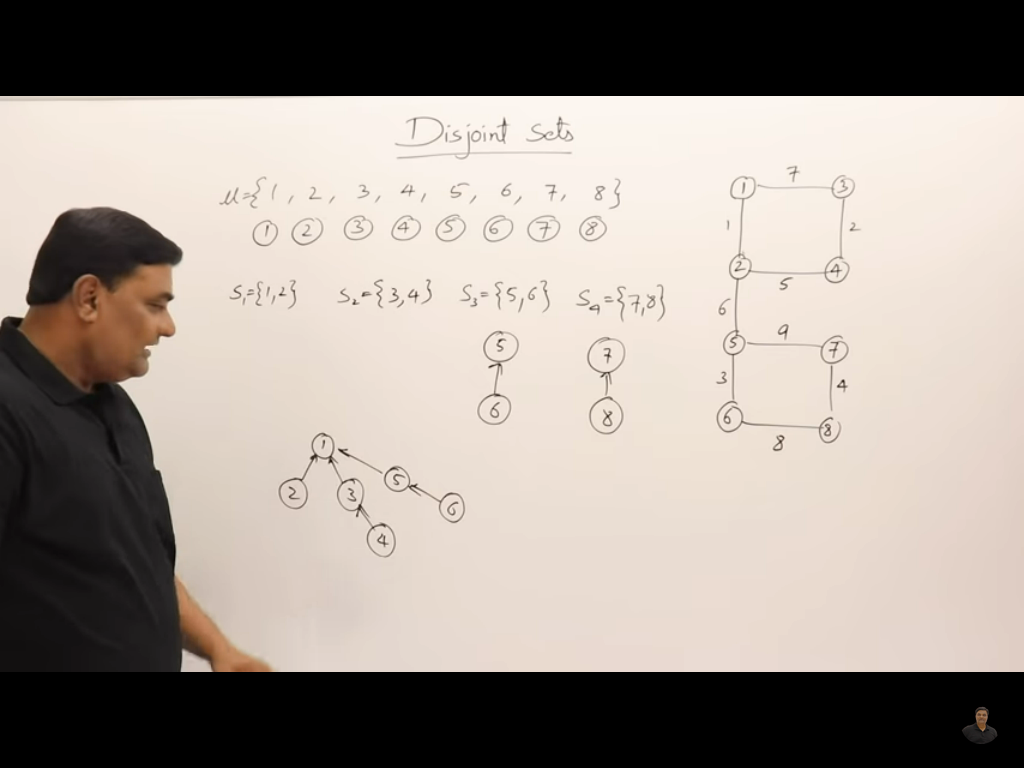 Disjoint Sets
μ={1, 2, 3, 4, 5, 6, 7, 8}
1 2 3 4 5 6 7 8
S₁={1,2} S₂={3,4} S₃={5,6} S₄={7,8}
5 7
6 8
1
2 3 5 6
4
1 7 3
1 2
2 5 4
6
5 9 7
3 4
6 8 8